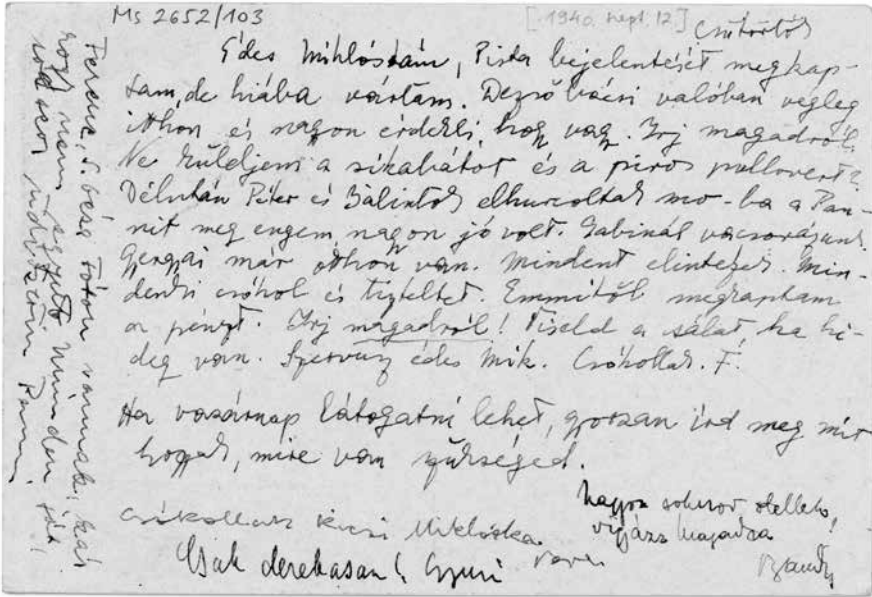 Ms 2652/103
[1940. szept. 12.] Csütörtök
Édes Miklóskám, Pista bejelentését megkap-
tam, de hiába vártam. Dezső bácsi valóban végleg
itthon és nagyon érdekli, hogy vagy. Írj magadról.
Ne küldjem a síkabátot és a piros pullovert?
Délután Péter és Bálinték elhurcoltak mo-ba a Pan-
nit meg engem, nagyon jó volt. Gabinál vacsorázunk.
Gergyai már otthon van. Mindent elintézek. Min-
denki csókol és tiszteltet. Emmitől megkaptam
a pénzt. Írj magadról! Viseld a sálat, ha hi-
deg van. Szervusz édes Mik. Csókollak. F.
Ha vasárnap látogatni lehet, gyorsan írd meg mit
hozzak, mire van szükséged.
Csókollak kicsi Miklóska
nagyon sokszor ölellek,
vigyázz magadra
Csak derekasan! Gyuri
Ferenc, S. bécsi úton vannak, kár
hogy nem együtt minden jót!
sokszor üdvözlöm